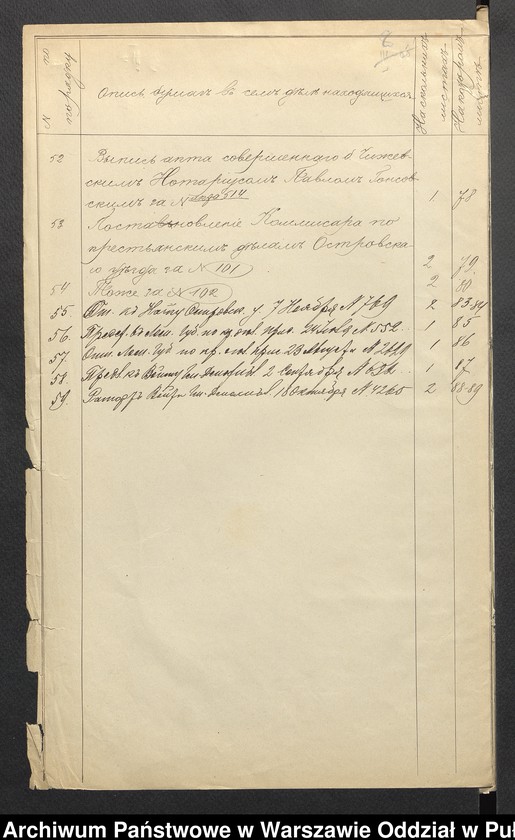 № по порядку
Опись бумагъ въ семъ дѣлѣ находящихся
На сколькихъ листахъ
Нумерація листовъ
52 Выпись акта совершеннаго Чижев-
скимъ Нотаріусомъ Павломъ
скимъ за № 514 1 78
53 Постановленіе Коммисара по
крестьянскимъ дѣламъ Островска-
го уѣзда за № 101 2 79
54 Тоже за № 102 2 80
55. От. къ Нач. Островск. у. 7 Ноября № 769 2 83-84
56. Предс. въ Лом. Губ. по кр. дѣл. прис. № 552. 1 85
57. Отн. Лом. Губ. по кр. дѣл. прис. 23 Августа № 2629 1 86
58. Предп. Войту Гм. 2 Сентября № 632 1 87
59. Рапортъ Войта Гм. 18 Октября № 4265 2 88-89
Archiwum Państwowe w Warszawie Oddział w Pu